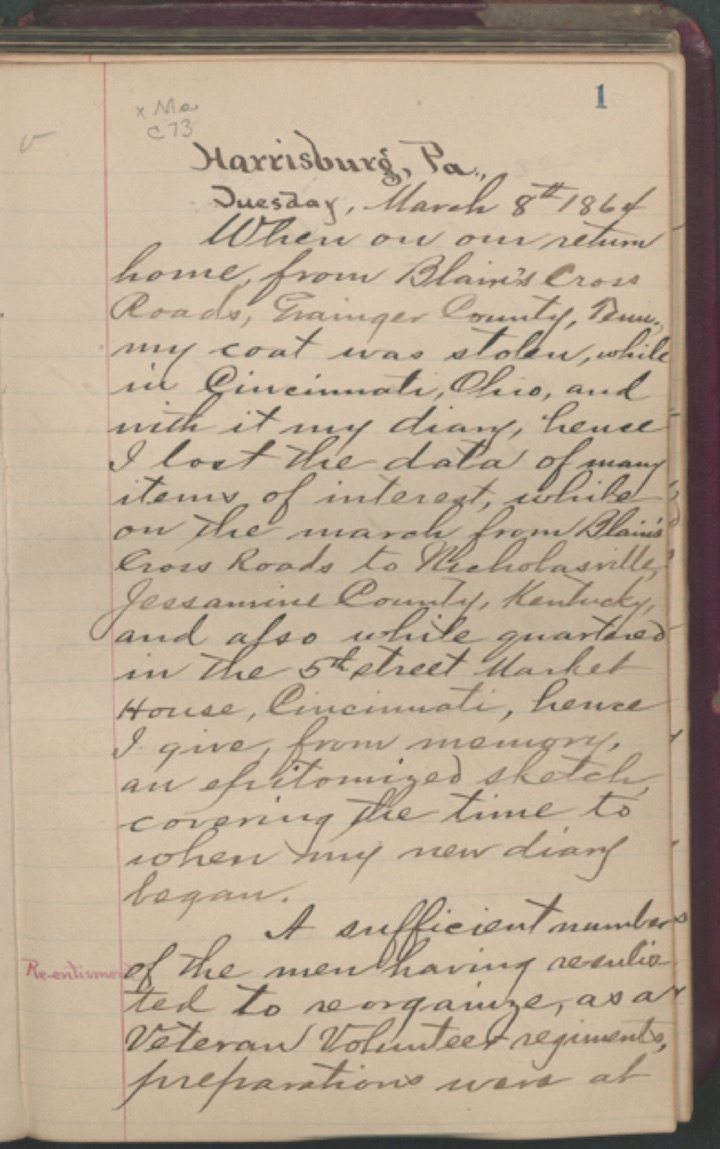 1
x Me
C73
Harrisburg, Pa.,
Tuesday, March 8th 1864
When on our return
home, from Blain's Cross
Roads, Grainger County, Tenn.,
my coat was stolen, while
in Cincinnati, Ohio, and
with it my diary, hence
I lost the data of many
items of interest, while
on the march from Blain's
Cross Roads to Nicholasville,
Jessamine County, Kentucky,
and also while quartered
in the 5th street Market
House, Cincinnati, hence
I give, from memory,
an epitomized sketch,
covering the time to
when my new diary
began.
A sufficient number
Re-enlismen
of the men having reenlis-
ted to reorganize, as a
Veteran Volunteer regiments,
preparations were at